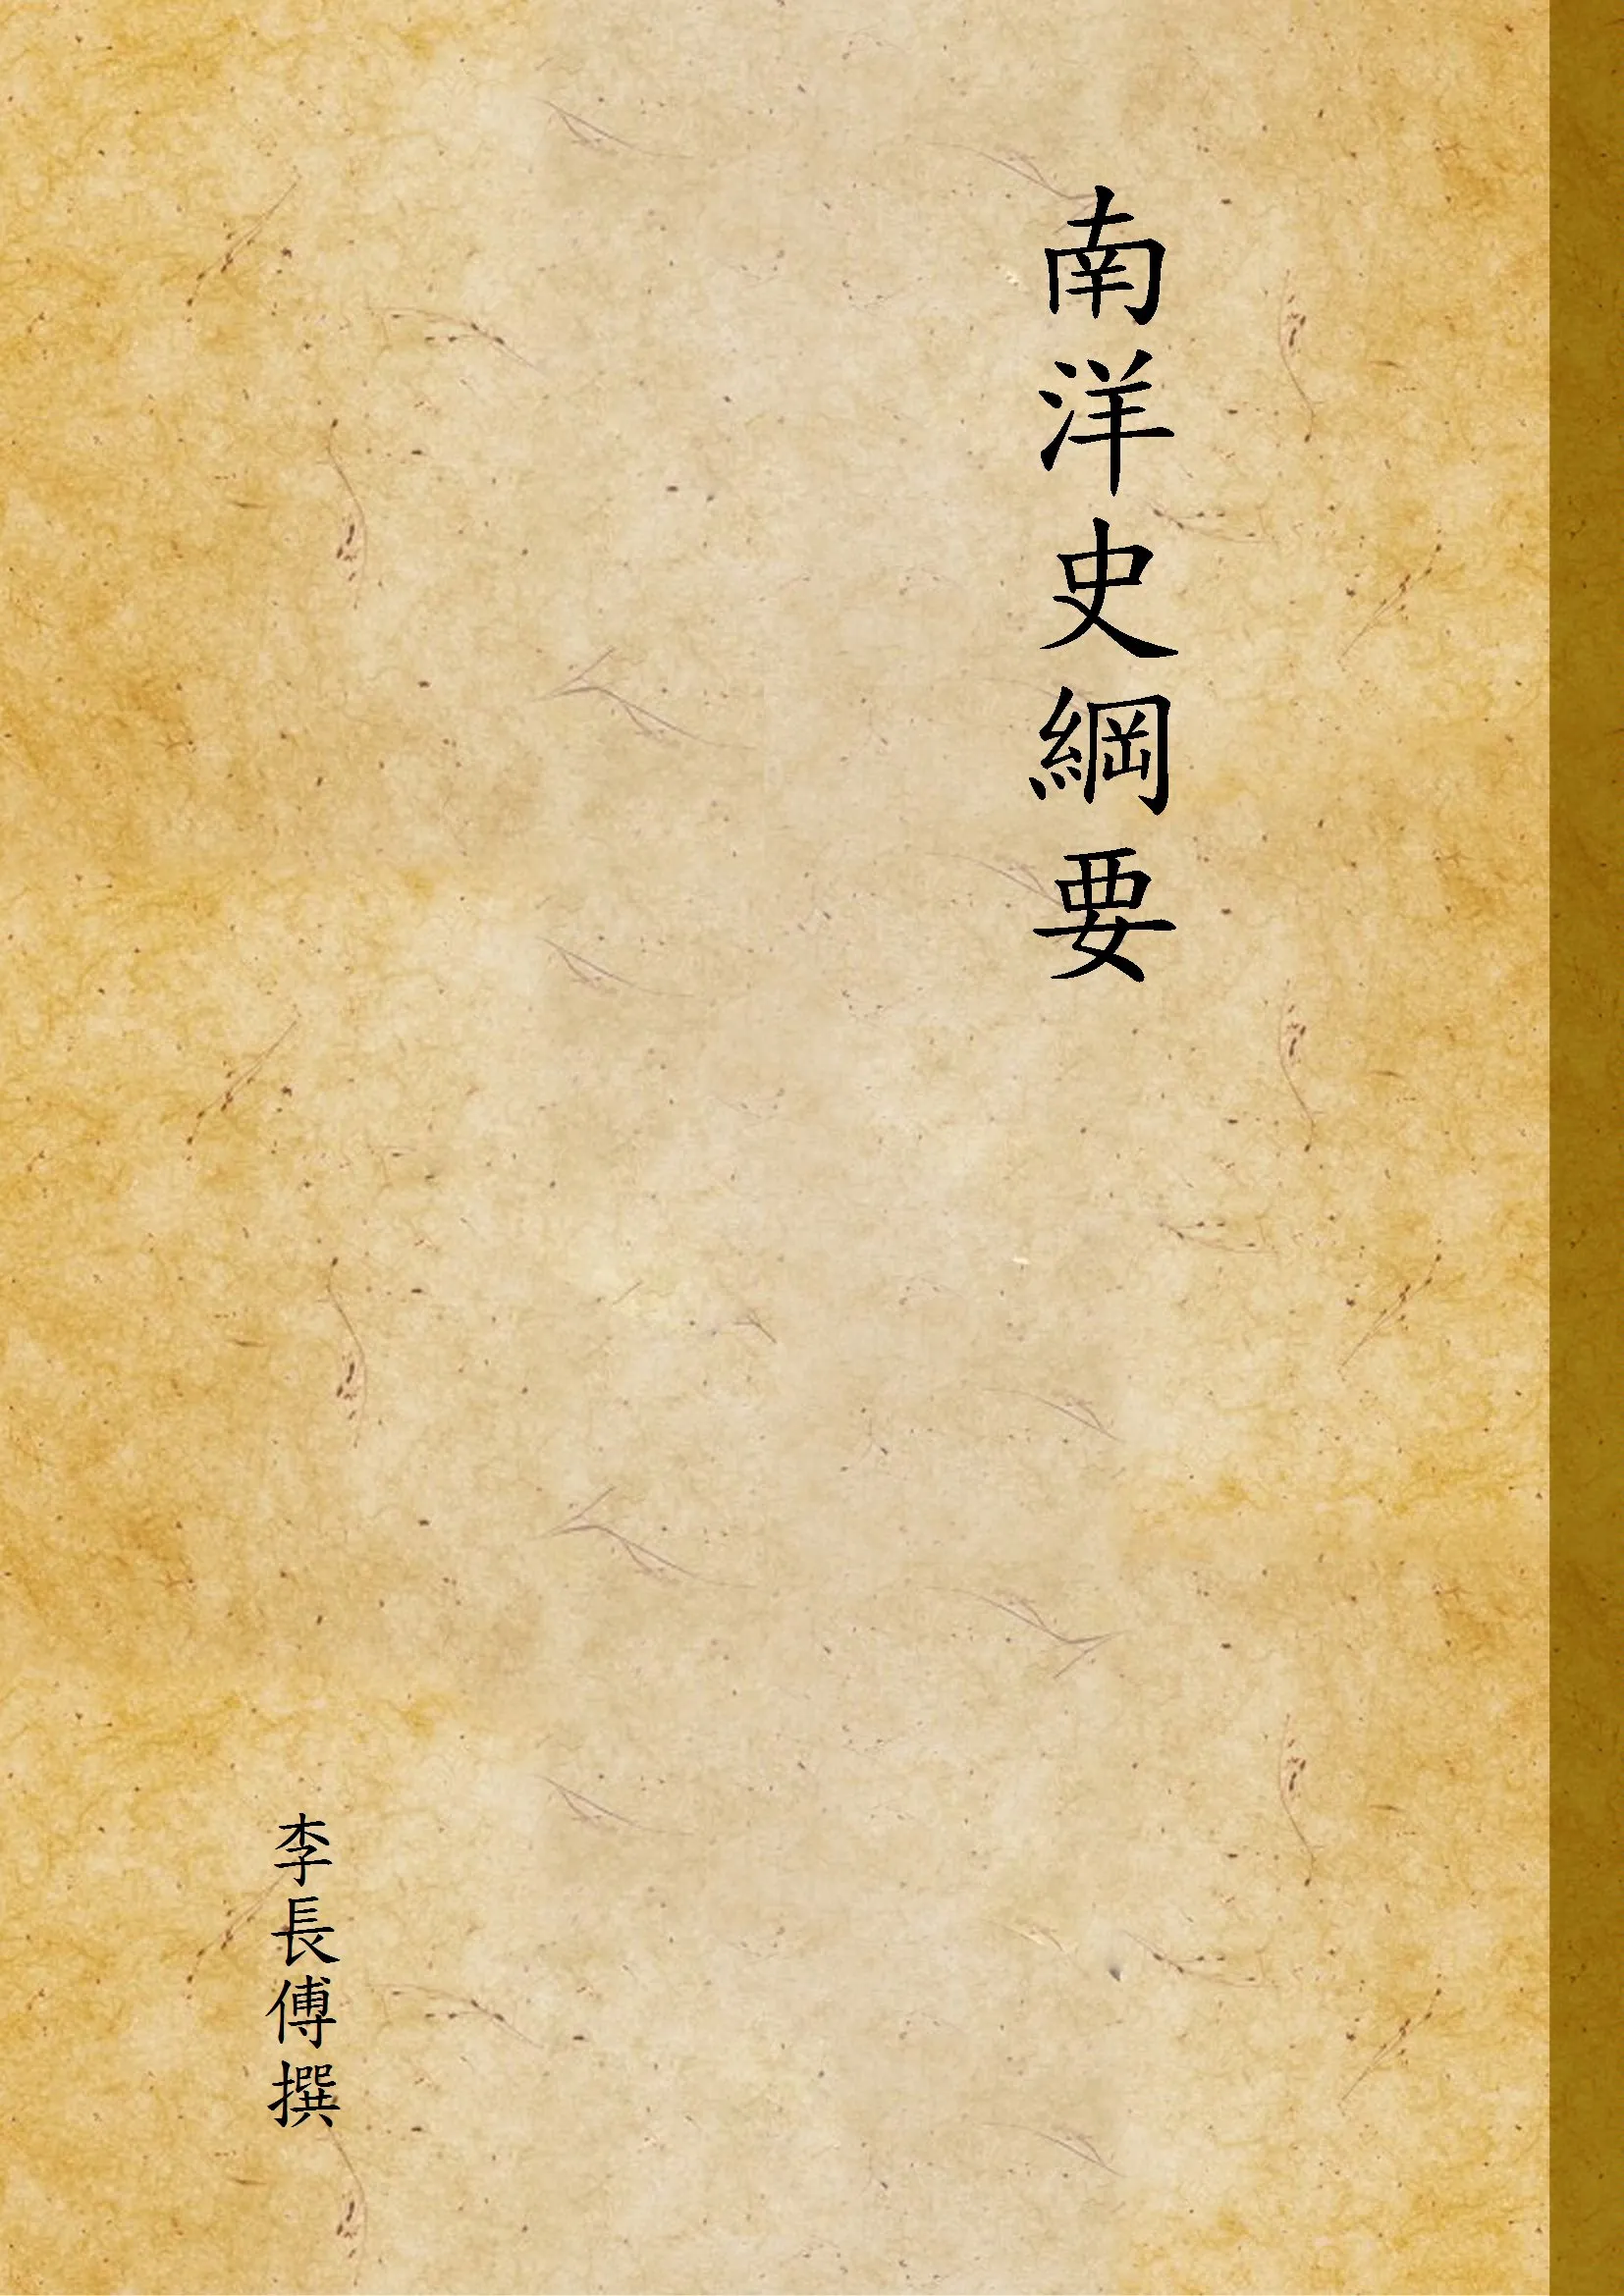 南洋史綱要
李長傅撰